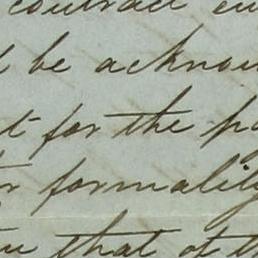 contract
be acknow
t for the pa
r formality
that of th